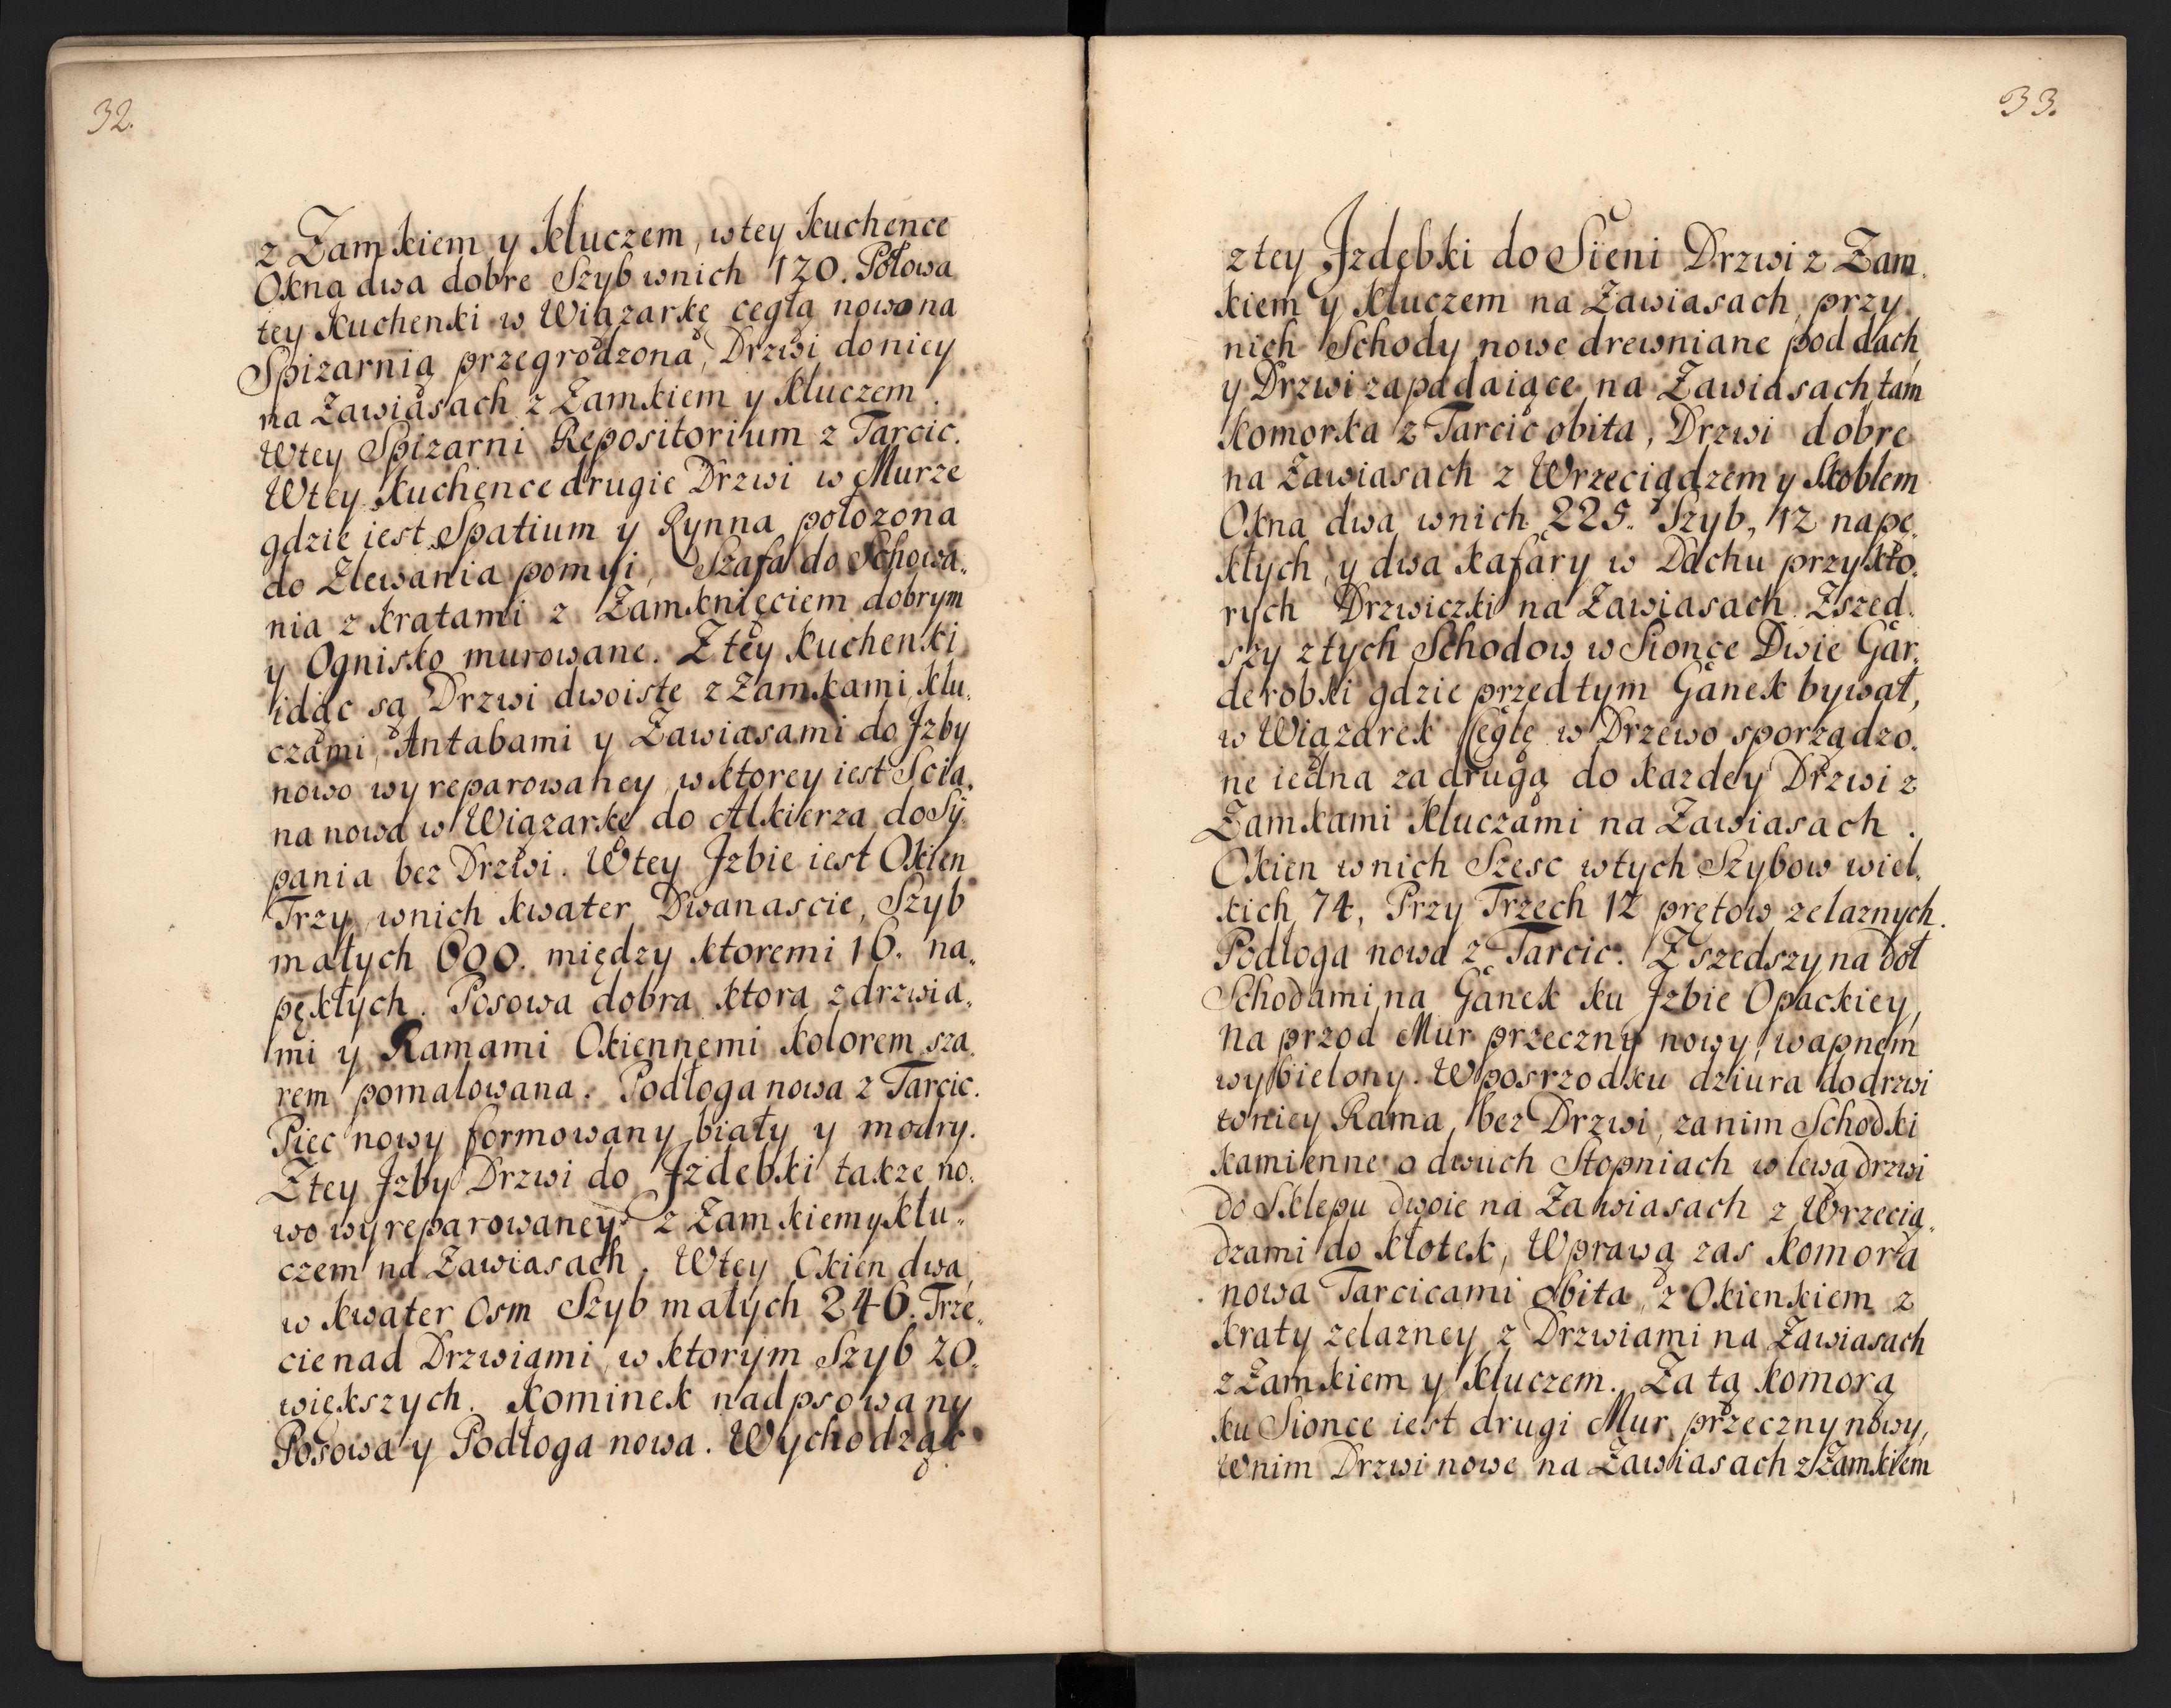 32.
z Zamkiem y Kluczem, wtey Kuchence
Okna dwa dobre Szyb wnich 120. Połowa
tey Kuchenki w Wiązarkę cegłą nowo na
Spizarnią przegrodzona, Drzwi doniey
na Zawiasach z Zamkiem y Kluczem.
Wtey Spizarni Repositorium z Tarcic.
Wtey Kuchence drugie Drzwi w Murze
gdzie iest Spatium y Rynna położona
do Zlewania pomyi, Szafa do Schowa„
nia z Kratami z Zamknięciem dobrym
y Ognisko murowane. Ztey Kuchenki
idąc są Drzwi dwoiste z Zamkami, Klu„
czami, Antabami y Zawiasami do Jzby
nowo wyreparowaney, wktorey iest Scia„
na nowa w Wiązarkę do Alkierza do Sy„
pania bez Drzwi. Wtey Jzbie iest Okien
Trzy, wnich Kwater Dwanascie, Szyb
małych 600. między Ktoremi 16. na„
pękłych. Posowa dobra Ktora zdrzwia„
mi y Ramami Okiennemi Kolorem sza„
rem pomalowana. Podłoga nowa z Tarcic.
Piec nowy formowany biały y modry.
Ztey Jzby Drzwi do Jzdebki takze no„
wo wyreparowaney z Zamkiem y Klu„
czem na Zawiasach. Wtey Okien dwa,
w Kwater Osm Szyb małych 246. Trze„
cie nad Drzwiami, w Ktorym Szyb 20.
większych. Kominek nadpsowany
Posowa y Podłoga nowa. Wychodząc
33.
ztey Jzdebki do Sieni Drzwi z Zam„
kiem y Kluczem na Zawiasach, przy
nich Schody nowe drewniane pod dach,
y Drzwi zapadaiące na Zawiasach tam
Komorka z Tarcic obita, Drzwi dobre
na Zawiasach z Wrzeciądzem y Skoblem
Okna dwa wnich 225. Szyb, 12 napę„
kłych, y dwa Kafary w Dachu przy Kto„
rych Drzwiczki na Zawiasach. Zszed„
szy ztych Schodow w Sionce Dwie Gar„
derobki gdzie przedtym Ganek bywał,
w Wiązarek Cegłę w Drzewo sporządzo„
ne iedna za drugą do Kazdey Drzwi z
Zamkami Kluczami na Zawiasach.
Okien wnich Szesc wtych Szybow wiel„
kich 74, Przy Trzech 12 prętow zelaznych.
Podłoga nowa z Tarcic. Zszedszy na doł
Schodami na Ganek ku Jzbie Opackiey,
na przod Mur przeczny nowy, wapnem
wybielony. Wposrzodku dziura do drzwi
wniey Rama, bez Drzwi, za nim Schodki
Kamienne o dwuch Stopniach w lewą drzwi
do Sklepu dwoie na Zawiasach z Wrzecią„
dzami do Kłotek, Wprawą zas Komora
nowa Tarcicami obita, z Okienkiem z
Kraty zelazney z Drzwiami na Zawiasach
z Zamkiem y Kluczem. Za tą Komorą
ku Sionce iest drugi Mur przeczny nowy,
Wnim Drzwi nowe na Zawiasach z Zamkiem